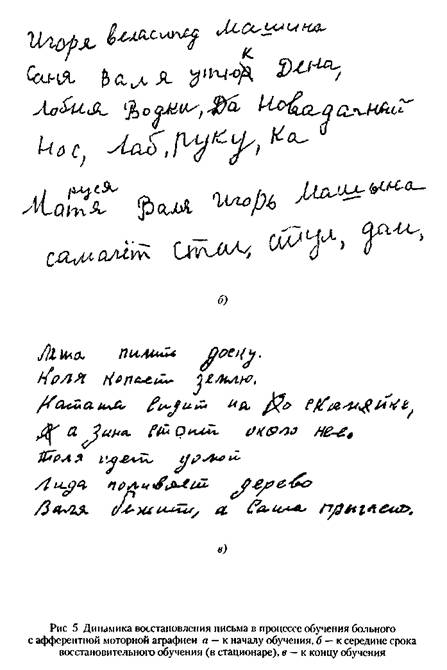 Игоря веласипед Машина
к
Саня Валя утюк Дена,
Лобния Водки, Да Новадачный
Нос, Лаб, Руку, Ка
руся
Матя Валя Игорь Машына
самалёт Стал, стул, дом,
б)
Лёша пилить доску.
Коля копает землю.
Наташа видит на до скамяйке,
а Зина стоит около нее.
Толя идет домой
Лида поливает дерево
Валя бежить, а Саша прыгает.
в)
Рис 5 Динамика восстановления письма в процессе обучения больного
с афферентной моторной аграфиеи а — к началу обучения, б — к середине срока
восстановительного обучения (в стационаре), в — к концу обучения